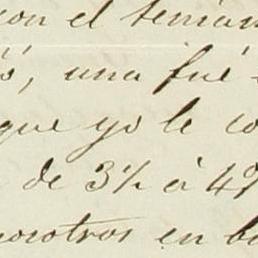 con el tenian
s, una fué
que yo le co
de 3½ à 4
nosotros en ba